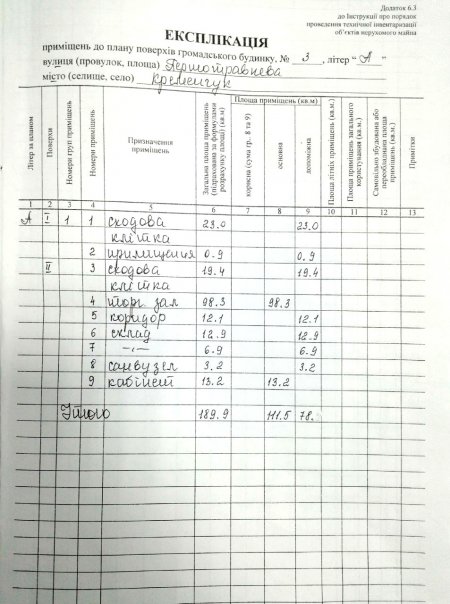 Додаток 6.3
до Інструкції про порядок
проведення технічної інвентаризації
об'єктів нерухомого майна
ЕКСПЛІКАЦІЯ
приміщень до плану поверхів громадського будинку, № 3, літер "А"
вулиця (провулок, площа) Першотравнева
місто (селище, село) Кременчук
Літер за планом
Поверхи
Номери груп приміщень
Номери приміщень
Призначення приміщень
Загальна площа приміщень (підрахована за формулами розрахунку площі) (кв.м)
Площа приміщень (кв.м)
корисна (сума гр. 8 та 9)
основна
допоміжна
Площа літніх приміщень (кв.м)
Площа приміщень загального користування (кв.м)
Самовільно збудована або переобладнана площа приміщень (кв.м)
Примітки
1 2 3 4 5 6 7 8 9 10 11 12 13
А I 1 1 сходова 23.0 23.0
клітка
2 приміщення 0.9 0.9
II 3 сходова 19.4 19.4
клітка
4 торг. зал 98.3 98.3
5 коридор 12.1 12.1
6 склад 12.9 12.9
7 -"- 6.9 6.9
8 санвузел 3.2 3.2
9 кабінет 13.2 13.2
Ітого 189.9 111.5 78.